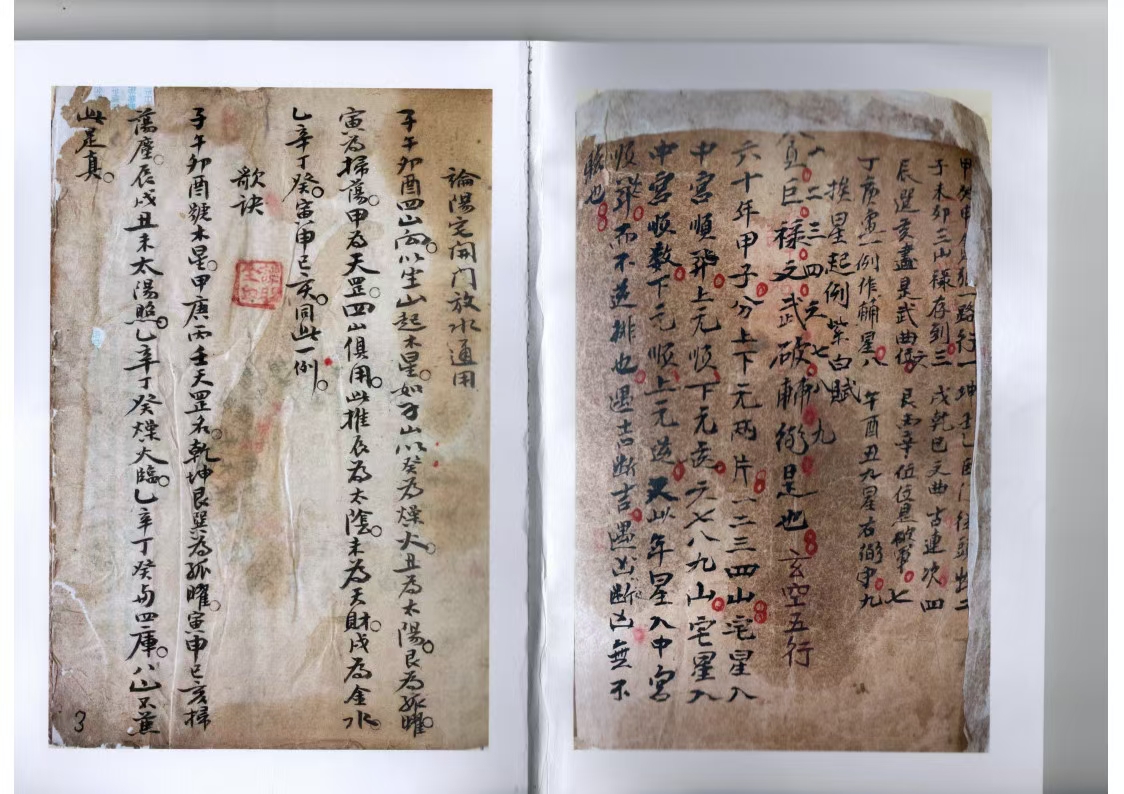 甲癸申貪狼一路行一坤壬乙
子未卯三山祿存到三戌乾巳文曲古連次四
辰巽亥盡是武曲位六艮丙辛位位是破軍七
丁庚虛一例作輔星八午酉丑九星右弼守九
挨星起例紫白賦
一二三四六七八九
貪巨祿文武破輔弼是也玄空五行
六十年甲子分上下元兩片一二三四山宅星入
中宮順飛上元順下元逆六七八九山宅星入
中宮順數下元順上元逆又以年星入中宮
順飛而不逆排也遇吉斷吉遇凶斷凶無不
驗也
論陽宅開門放水通用
子午卯酉四山向以坐山起木星如子山以癸為燥火丑為太陽艮為孤曜
寅為掃蕩甲為天罡四山俱用此推辰為太陰未為天財戌為金水
乙辛丁癸寅申巳亥同此一例
歌訣
子午卯酉號木星甲庚丙壬天罡名乾坤艮巽為孤曜寅申巳亥掃
蕩塵辰戌丑未太陽照乙辛丁癸燥火臨乙辛丁癸与四庫八山不蕉
此是真
3